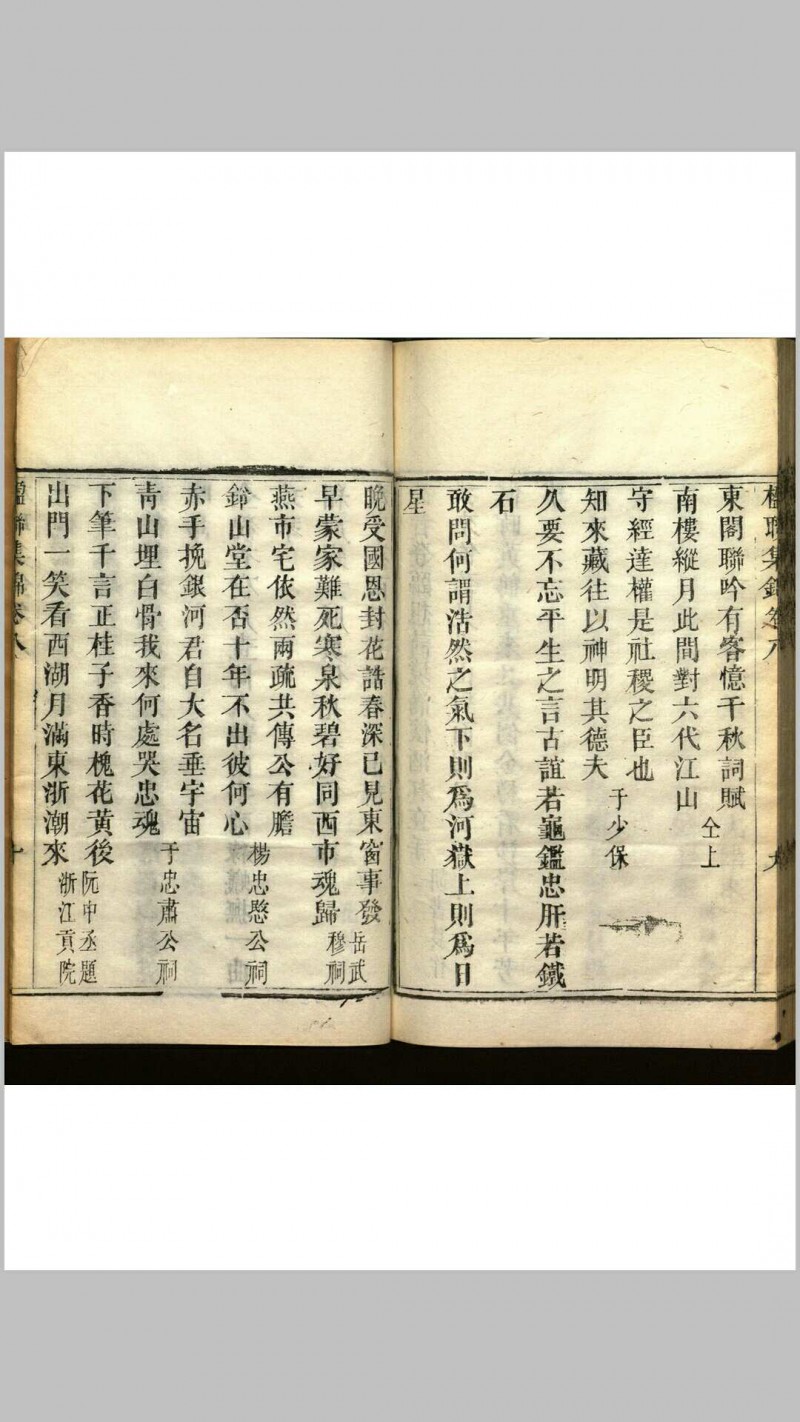 楹聯集錦卷八
東閣聯吟有客憶千秋詞賦
南樓縱月此間對六代江山 仝上
守經達權是社稷之臣也
知來藏往以神明其德夫 于少保
久要不忘平生之言古誼若龜鑑忠肝若鐵
石
敢問何謂浩然之氣下則爲河嶽上則爲日
星
晚受國恩封花誥春深已見東窗事發 岳武
早蒙家難死寒泉秋碧好同西市魂歸 穆祠
燕市宅依然兩疏共傳公有膽
鈴山堂在否十年不出彼何心 楊忠愍公祠
赤手挽銀河君自大名垂宇宙
靑山埋白骨我來何處哭忠魂 于忠肅公祠
下筆千言正桂子香時槐花黃後 阮中丞題
出門一笑看西湖月滿東浙潮來 浙江貢院
楹聯集錦卷八
十